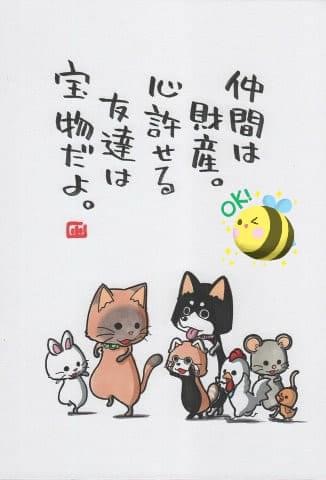 仲間は
財産。
心許せる
友達は
宝物だよ。
OK!